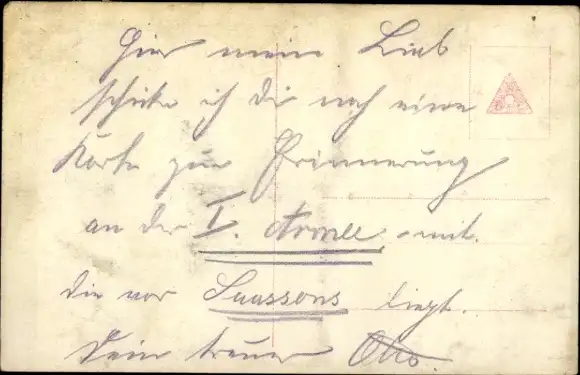 Hier mein Lieb
schicke ich dir noch eine
Karte zur Erinnerung
an der I. Armee, mit.
die vor Suassons liegt.
Dein treuer Otto.